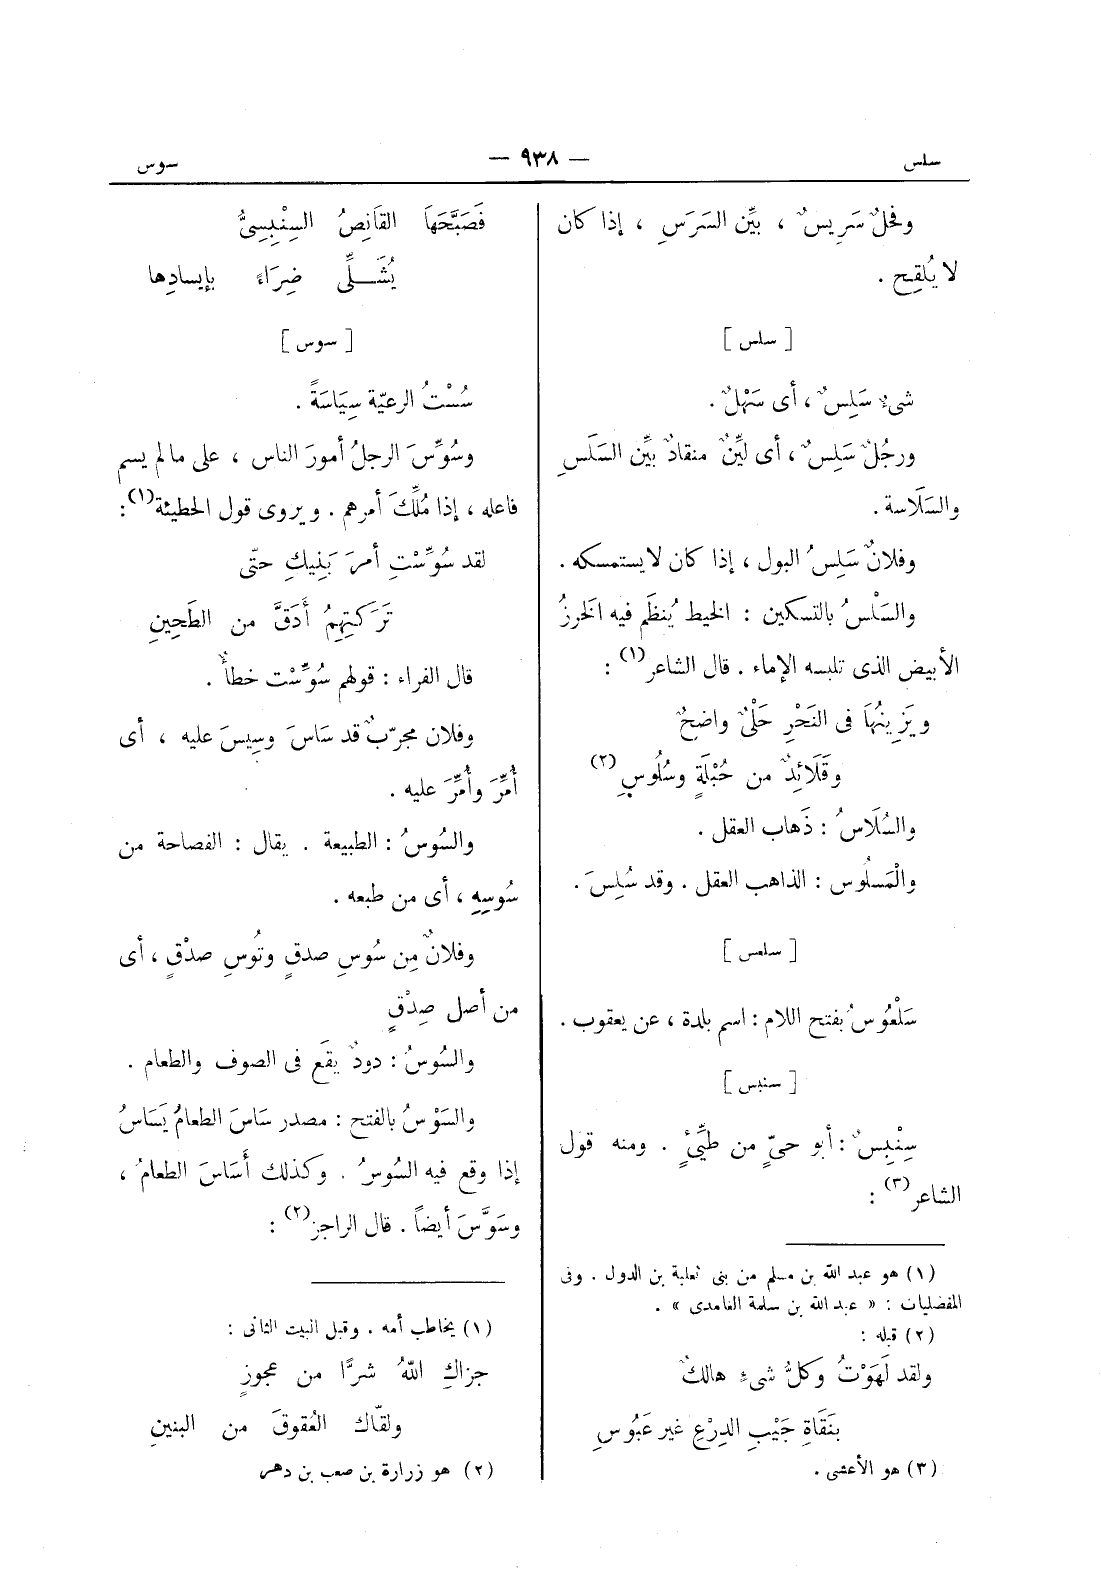 سلس
— ٩٣٨ —
سوس
وفحلٌ سَرِيسٌ ، بيِّن السَرَسِ ، إذا كان
لا يُلقِح .
[ سلس ]
شىءٌ سَلِسٌ ، أى سَهْلٌ .
ورجُلٌ سَلِسٌ ، أى ليِّنٌ منقادٌ بيِّن السَلَسِ
والسَلَاسة .
وفلانٌ سَلِسُ البول ، إذا كان لا يستمسكه .
والسَلْسُ بالتسكين : الخيط يُنظَم فيه الخرزُ
الأبيض الذى تلبسه الإماء . قال الشاعر(١) :
ويَزِينُهَا فى النَحْرِ حَلْىٌ واضحٌ
وقَلَائِدٌ من حُبْلَةٍ وسُلُوسِ(٢)
والسُلَاسُ : ذَهاب العقل .
والْمَسلُوس : الذاهب العقل . وقد سُلِسَ .
[ سلعس ]
سَلَعُوسُ بفتح اللام : اسم بلدة ، عن يعقوب .
[ سنبس ]
سِنْبِسٌ : أبو حىٍّ من طيِّئٍ . ومنه قول
الشاعر(٣) :
(١) هو عبد الله بن مسلم من بنى ثعلبة بن الدول . وفى
المفضليات : « عبد الله بن سلمة الغامدى » .
(٢) قبله :
ولقد لَهَوْتُ وكلُّ شىءٍ هالكٌ
بنَقَاةِ جَيْبِ الدِرْعِ غير عَبُوسِ
(٣) هو الأعشى .
فَصَبَّحَهَا القَانِصُ السِنْبِسِىُّ
يُشَلِّى ضِرَاءً بإيسادِها
[ سوس ]
سُسْتُ الرعيّة سِيَاسَةً .
وسُوِّسَ الرجلُ أمورَ الناس ، على ما لم يسم
فاعله ، إذا مُلِّكَ أمرهم . ويروى قول الحطيئة(١) :
لقد سُوِّسْتِ أمرَ بَنِيكِ حتّى
تَرَكتِهِمُ أَدَقَّ من الطَحِينِ
قال الفراء : قولهم سُوِّسْت خطأٌ .
وفلان مجرّبٌ قد سَاسَ وسِيسَ عليه ، أى
أُمِّرَ وأُمِّرَ عليه .
والسُوسُ : الطبيعة . يقال : الفصاحة من
سُوسِهِ ، أى من طبعه .
وفلانٌ مِن سُوسِ صدقٍ وتُوسِ صدْقٍ ، أى
من أصل صِدْقٍ
والسُوسُ : دودٌ يقَع فى الصوف والطعام .
والسَوْسُ بالفتح : مصدر سَاسَ الطعامُ يَسَاسُ
إذا وقع فيه السُوسُ . وكذلك أَسَاسَ الطعامُ ،
وسَوَّسَ أيضاً . قال الراجز(٢) :
(١) يخاطب أمه . وقبل البيت الثانى :
جزاكِ اللهُ شرًّا من عجوزٍ
ولقّاك العُقوقَ من البنينِ
(٢) هو زرارة بن صعب بن دهر